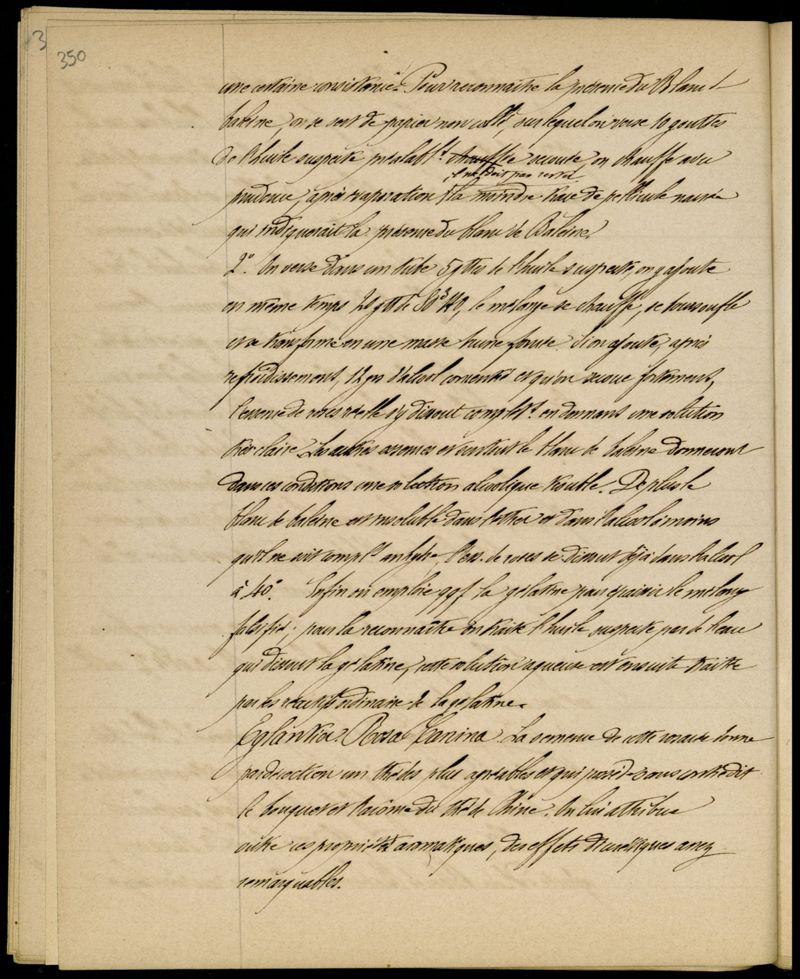 3
350
une certaine consistance. Pour reconnaître la présence du Blanc d
baleine, on se sert de papier non collé, sur lequel on verse 10 gouttes
de l'huile suspecte préalablt. chauffée secouée, on chauffe avec
il ne doit pas rester
prudence, après évaporation la moindre trace de pellicule nacrée
qui indiquerait la présence du blanc de Baleine.
2° On verse dans un tube 5 gttes de l'huile suspecte, on y ajoute
en même temps 20 gtt de SO3HO, le mélange se chauffe, se boursoufle
et se transforme en une masse brune foncée. Si on ajoute, après
refroidissement, 12 grs d'alcool concentré et qu'on secoue fortement,
l'essence de roses réelle s'y dissout complt. en donnant une solution
très claire. Les autres essences et surtout le blanc de baleine donneront
dans ces conditions une solution alcoolique trouble. De plus le
blanc de baleine est insoluble dans l'éther et dans l'alcool à moins
qu'il ne soit complt anhydre, l'ess. de roses se dissout déjà dans l'alcool
à 40°. Enfin on emploie qqf. la gélatine pour épaissir le mélange
falsifié; pour la reconnaître on traite l'huile suspecte par de l'eau
qui dissout la gélatine, cette solution aqueuse est ensuite traitée
par les réactifs ordinaires de la gélatine.
Eglantier. Rosa Canina. La semence de cette rosacée donne
par décoction un thé des plus agréables et qui possède sans contredit
le bouquet et l'arôme du thé de Chine. On lui attribue
outre ces propriétés aromatiques, des effets diurétiques assez
remarquables.